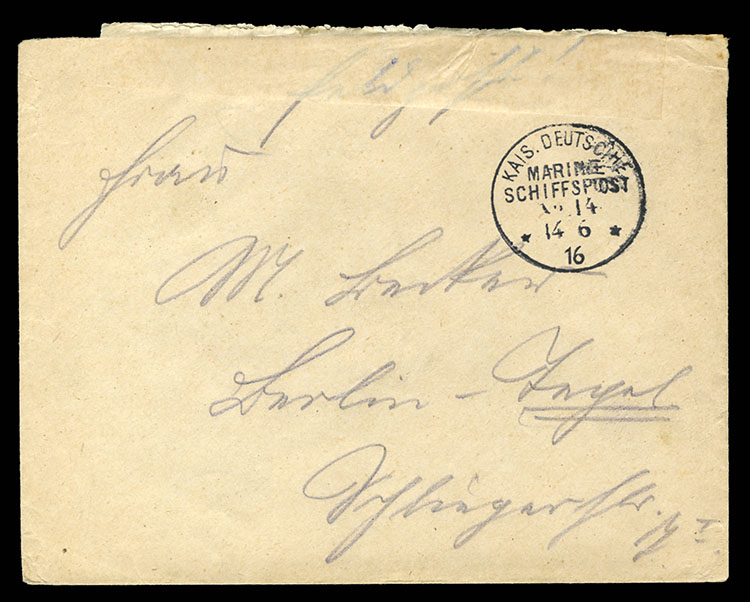 Feldpost!
Frau
KAIS. DEUTSCHE
MARINE
SCHIFFSPOST
No 14
* 14 6 *
16
M. Becker
Berlin - Tegel